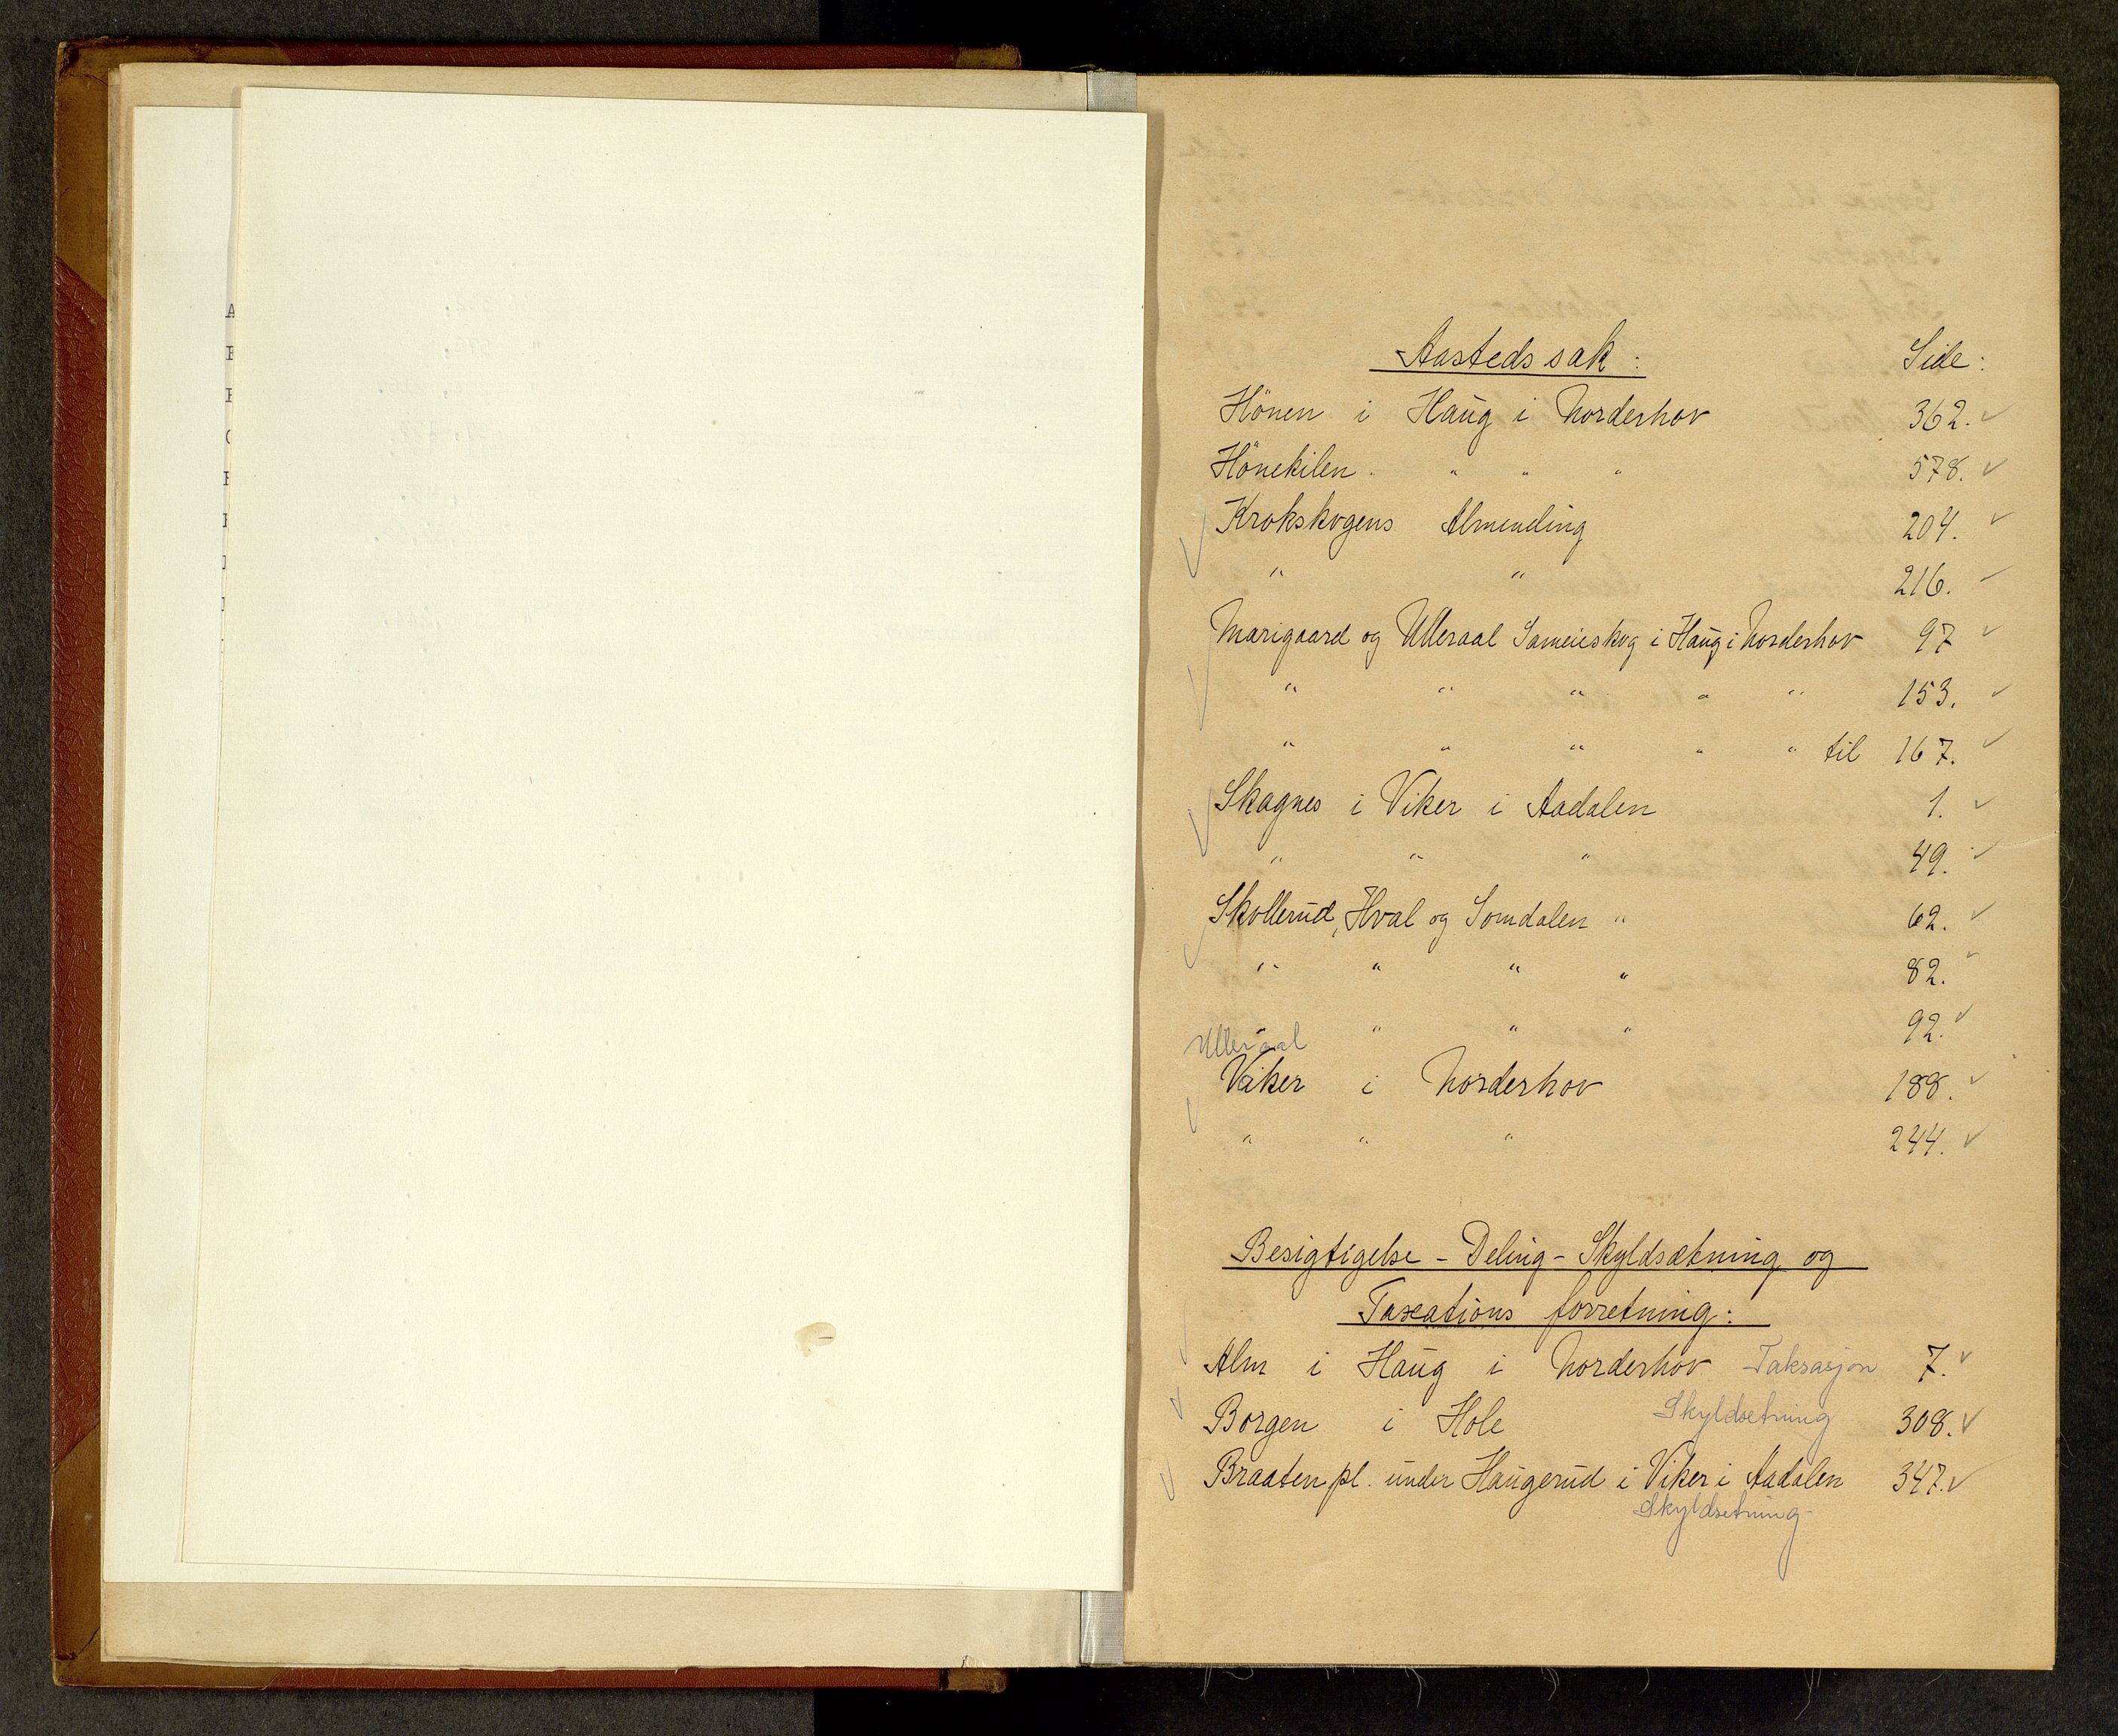 Aastedssak: Side:
Hönen i Haug i Norderhov 362.
Hönekilen " " " 578.
Krokskogens Almending 204.
" " 216.
Marigaard og Ulleraal Sameieskog i Haug i Norderhov 97
" " " " " 153.
" " " " " til 167.
Skagnes i Viker i Aadalen 1.
" " " 49.
Skollerud, Hval og Somdalen " 62.
" " " " 82.
" " " 92.
Ulleraal
Viker i Norderhov 188.
" " " 244.
Besigtigelse - Deling - Skyldsætning og
Taxations forretning:
Alm i Haug i Norderhov Taksasjon 7.
Borgen i Hole Skyldsetning 308.
Braaten pl. under Haugerud i Viker i Aadalen 347.
Skyldsetning